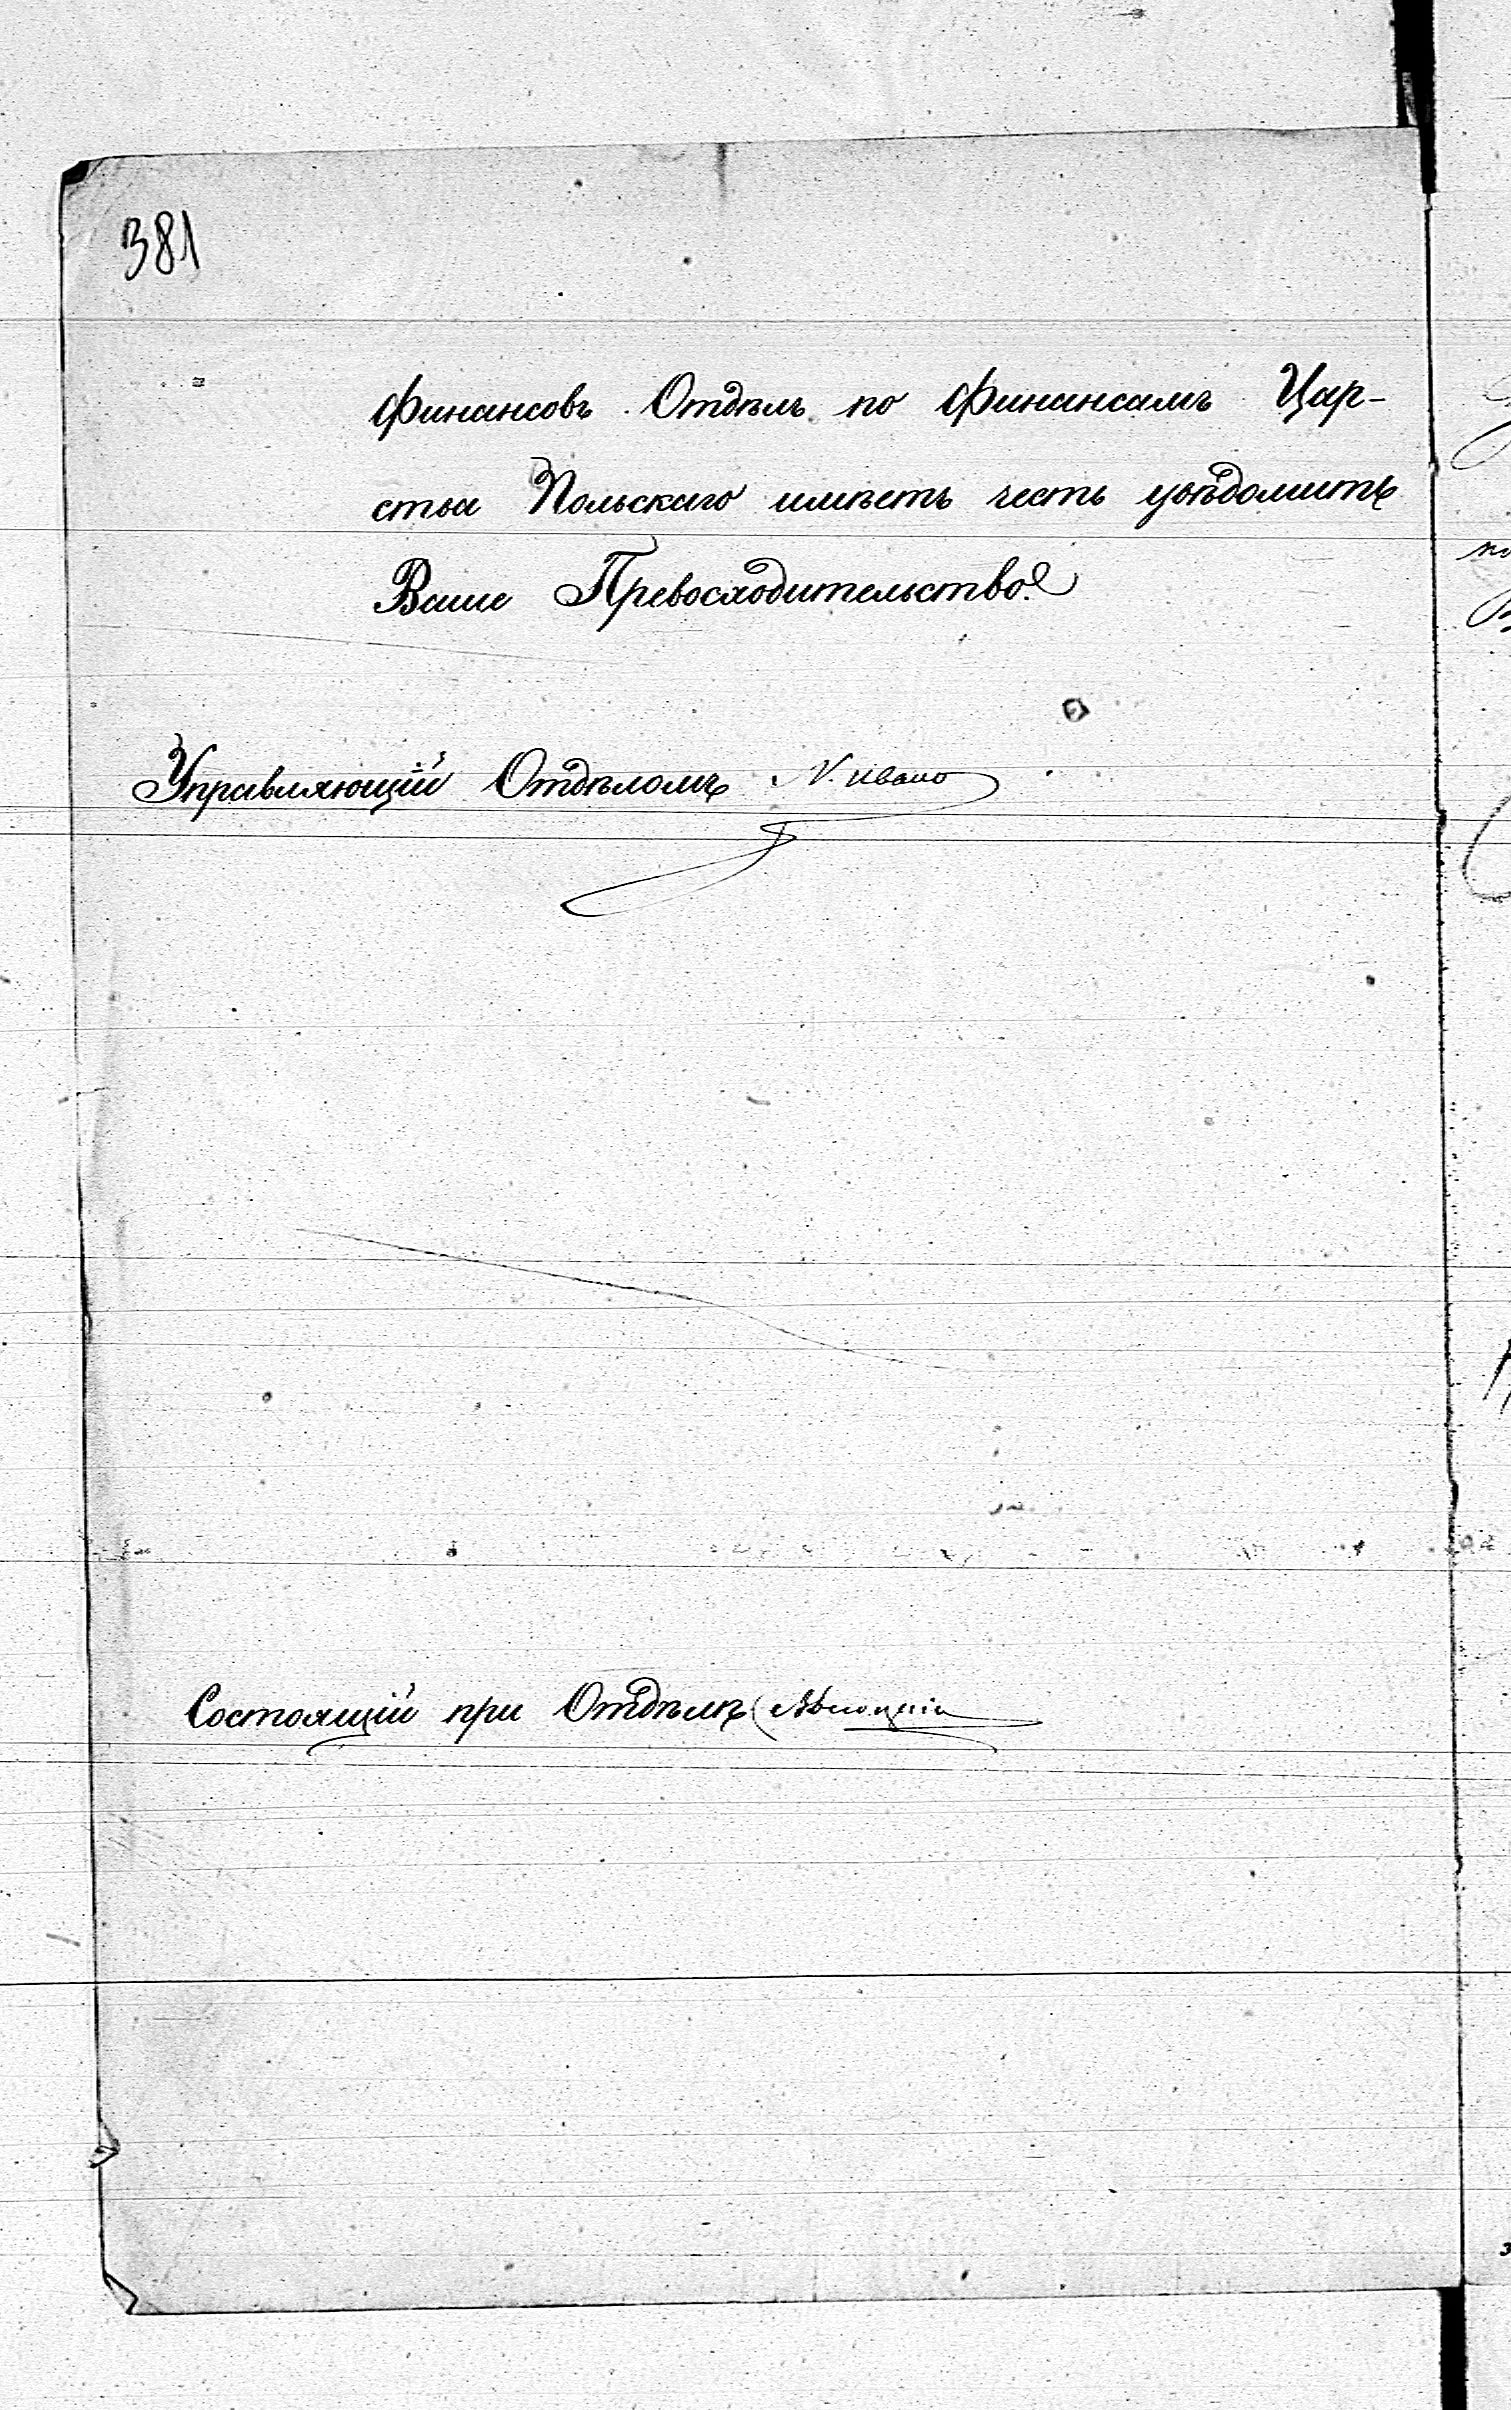 381
Финансовъ Отдѣлъ по Финансамъ Цар-
ства Польскаго имѣетъ честь увѣдомить
Ваше Превосходительство.
Управляющій Отдѣломъ
Состоящій при Отдѣлѣ